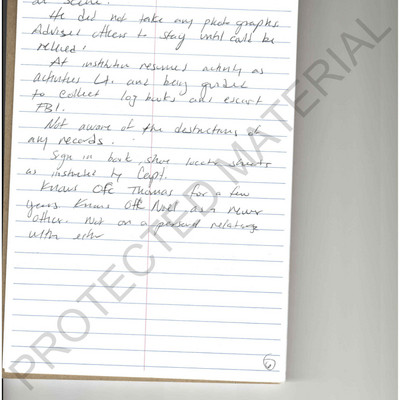 at scene.
He did not take any photographs.
Advised officers to stay until could be
relieved.
At institution resumed activity as
activities Lt. and being guided
to collect log books and escort
FBI.
Not aware of the destructions of
any records.
Sign in book, share locator sheets
as instructed by Capt.
Knows Ofc Thomas for a few
years. Knows Ofc Noel as a newer
officer. Not on a personal relations
with either
6
PROTECTED MATERIAL